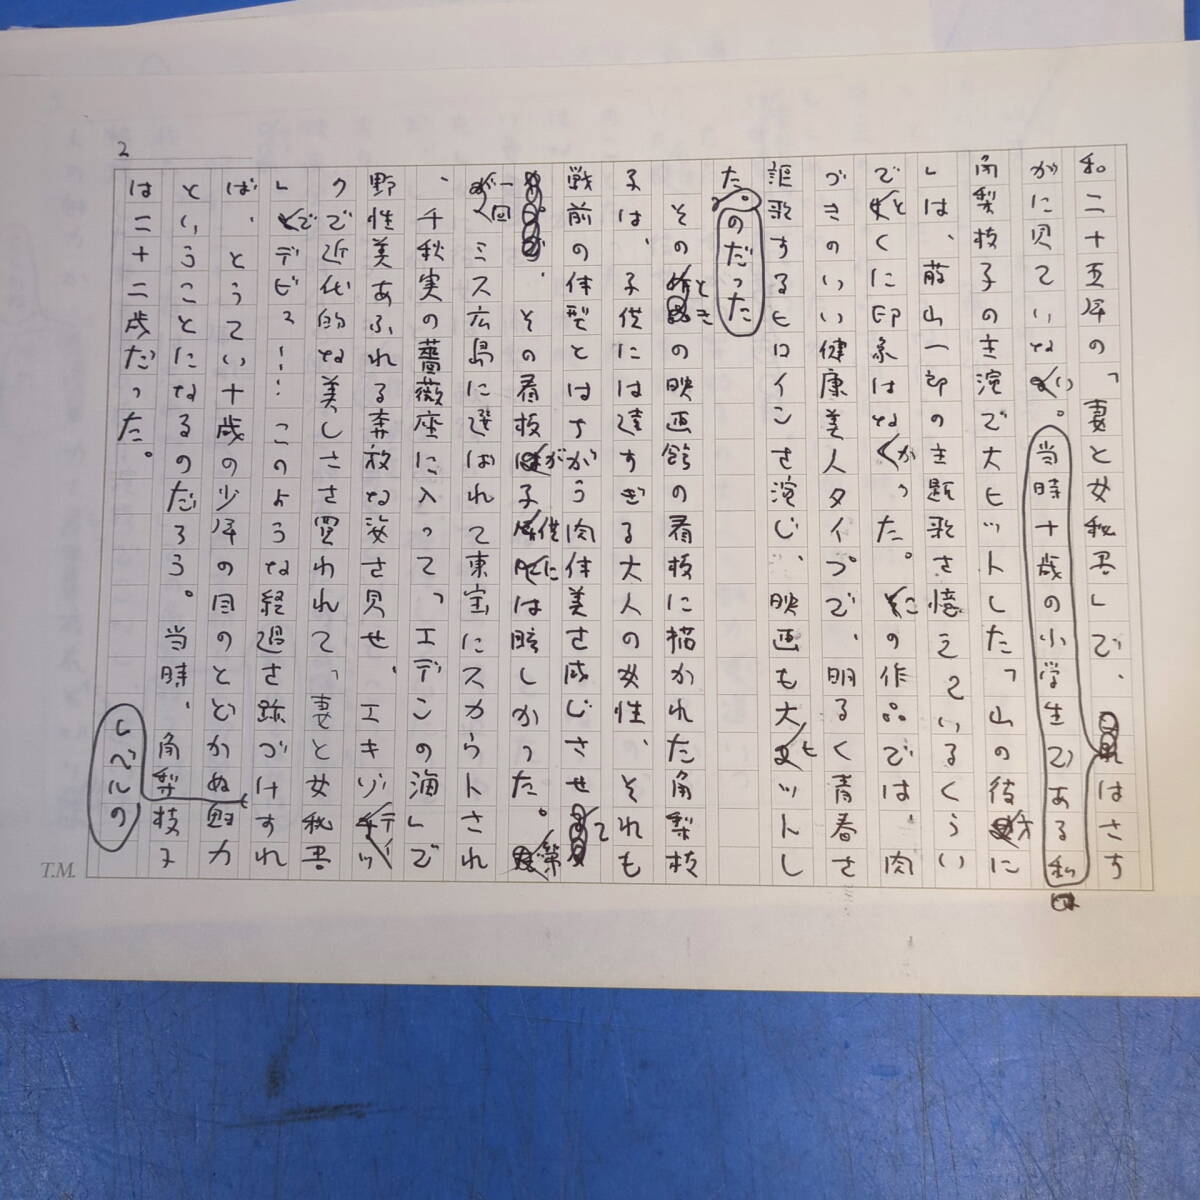 2
和二十五年の「妻と女秘書」で、はさす
がに見ていない。当時十歳の小学生である私は
角梨枝子の主演で大ヒットした「山の彼方に
」は、藤山一郎の主題歌を憶えているくらい
で、とくに印象はなかった。この作品では、肉
づきのいい健康美人タイプで、明るく青春を
謳歌するヒロインを演じ、映画も大ヒットし
た。のだった
そのときの映画館の看板に描かれた角梨枝
子は、子供には達すぎる大人の女性、それも
戦前の体型とはちがう肉体美を感じさせて
、その看板が子供には眩しかった。第
一回ミス広島に選ばれて東宝にスカウトされ
、千秋実の薔薇座に入って、「エデンの海」で
野性美あふれる奔放な姿を見せ、エキゾティッ
クで近代的な美しさを買われて、「妻と女秘書
」でデビュー！このような経過を跡づけすれ
ば、とうてい十歳の少年の目のとどかぬ魅力
ということになるのだろう。当時、角梨枝子
は二十二歳だった。
レベルの
T.M.